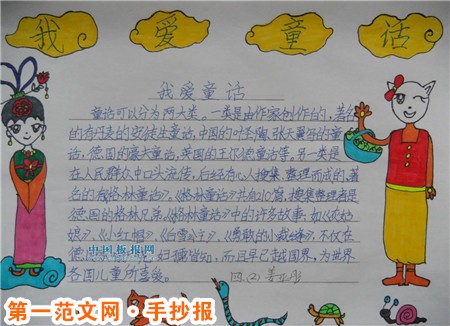 我 爱 童 话
我爱童话
童话可以分为两大类。一类是由作家创作的,著名
的有丹麦的安徒生童话,中国的叶圣陶、张天翼等的童
话,德国的豪夫童话,英国的王尔德童话等。另一类是
在人民群众中口头流传,后经有心人搜集、整理而成的,著
名的有格林童话》。《格林童话》共有210篇,搜集整理者是
德国的格林兄弟。《格林童话》中的许多故事,如《灰姑
娘》、《小红帽》、《白雪公主》、《勇敢的小裁缝》,不仅在
德 妇孺皆知,而且早已越国界,为世界
各国儿童所喜爱。
中国板报网
四.(2)
第一范文网·手抄报